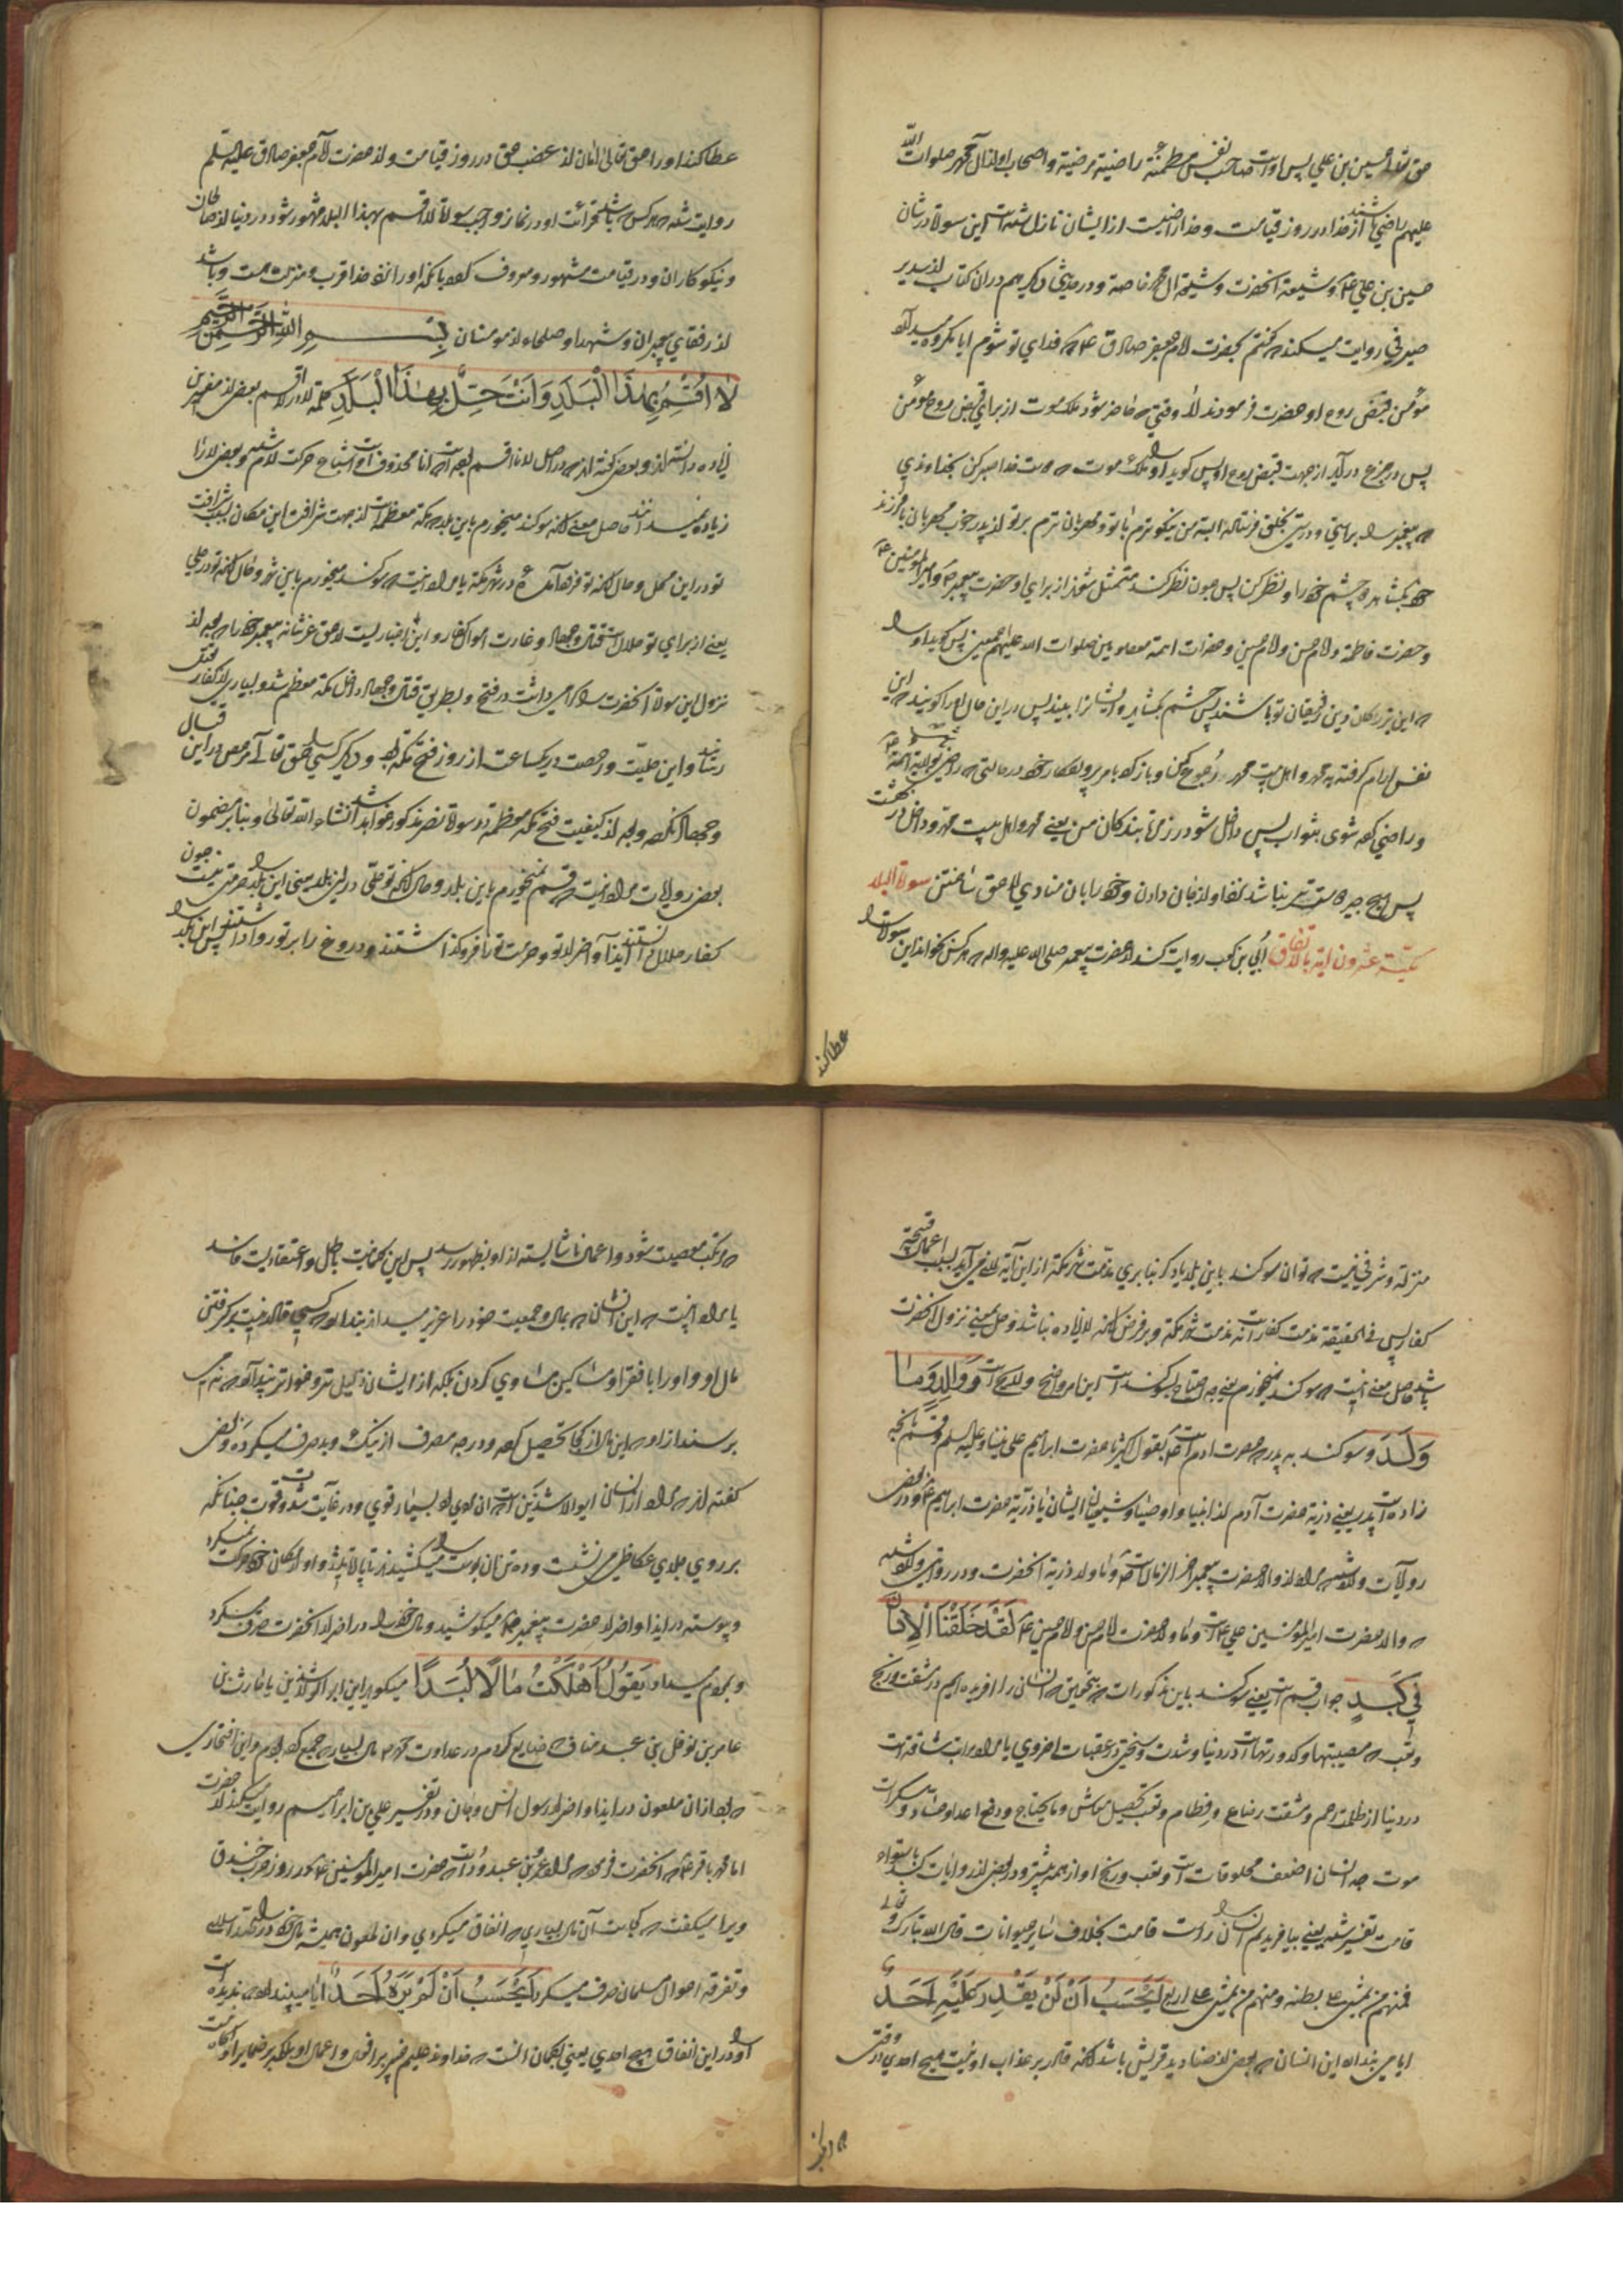 حق تعالی حسین بن علی پس اوست صاحب نفس مطمئنة راضیة مرضیة و اصحاب او از آل محمد صلوات الله
علیهم راضی باشند از خدا در روز قیامت و خدا راضیست از ایشان نازل شده است این سوره در شان
حسین بن علی ع و شیعهٔ آنحضرت و شیعهٔ آل محمد خاصة و در حدیثی دیگر هم در آن کتاب از سدیر
صیرفی روایت میکند که گفتم بحضرت امام جعفر صادق ع که فدای تو شوم ایا مکروه میدارد
مؤمن قبض روح او حضرت فرمودند لا وقتی که حاضر شود ملک موت از برای قبض روح مؤمن
پس در جزع در آید از جهت قبض روح او پس گوید او را ملک موت که دوست خدا صبر کن بخداوندی
که پیغمبر را براستی و درستی بخلق فرستاده البته من نیکوترم با تو و مهربان ترم بر تو از پدر خوب مهربان با فرزند
خود بگشا هر دو چشم خود را و نظر کن پس چون نظر کند متمثل شود از برای او حضرت پیغمبر ص و امیر المومنین ع
و حضرت فاطمة و امام حسن و امام حسین و حضرات ائمه معصومین صلوات الله علیهم اجمعین پس گوید او را
که این بزرگان دین رفیقان تو باشند پس چشم بگشاید و ایشانرا بیند پس در این حال او را گویند که این
نفس ارام گرفته به محمد و اهل بیت محمد رجوع کن و بازگرد بامر پروردگار خود در حالتی که راضی بولایت ائمة
و راضی کرده شوی بثواب پس داخل شو در زمرهٔ بندگان من یعنی محمد و اهل بیت محمد و داخل در بهشت
پس هیچ چیز دوست تر نباشد نزد او از جان دادن و خود را بان منادی لاحق ساختن سورة البلد
مکیة عشرون ایة بالاتفاق اُبی بن کعب روایت کند از حضرت پیغمبر صلی الله علیه واله که هر کس بخواند این سوره را
عطا کند
عطا کند او را حق تعالی امان از غضب حق در روز قیامت و از حضرت امام جعفر صادق علیه السلم
روایت شده که هر کس باشد قرائت او در نماز واجب سورهٔ لا اقسم بهذا البلد مشهور شود در دنیا از صالحان
و نیکوکاران و در قیامت مشهور و معروف گردد بانکه او را نزد خدا قرب و منزلت هست و باشد
از رفقای پیغمبران و شهدا و صلحاء از مومنان بسم الله الرحمن الرحیم
لَا أُقْسِمُ بِهَذَا الْبَلَدِ وَأَنْتَ حِلٌّ بِهَذَا الْبَلَدِ کلمهٔ لا در لا اقسم بعضی از مفسرین
زیاده دانسته اند و بعضی گفته اند که در اصل لانا اقسم بوده است انا محذوف است و اشباع حرکت لام شده و بعضی لا را
زیاده نمیدانند حاصل معنی انکه سوگند میخورم باین بلد که مکه معظمه است از جهت شرافت این مکان بسبب شرافت
تو در این محل و حال انکه تو فرود آمدهٔ در شهر مکه یا مراد اینست که سوگند میخورم باین شهر و حال انکه تو در حلی
یعنی از برای تو حلال است قتال و جهاد و غارت اموال کفار و این اخباریست از حق عزشانه پیغمبر خود را که بعد از
نزول این سوره آنحضرت را مکرمی داشت در فتح و بطریق قتال و جهاد داخل مکه معظمه شد و بسیاری از کفار بقتل
رساند و این حلیت و رخصت در یکساعت از روز فتح مکه بود و دیگر کسی را حق تعالی مرخص در این قتال
و جهاد نکرده و بعد از کیفیت فتح مکه معظمه در سورهٔ نصر مذکور خواهد شد انشاء الله تعالی و بنابر مضمون
بعضی روایات مراد اینست که قسم نمیخورم باین بلد و حال انکه تو حلی در این بلد یعنی این بلد را حرمتی نیست چون
کفار حلال دانستند ایذا و آضرار تو و حرمت ترا فرو گذاشتند و دروغ را بر تو روا داشتند پس این بلد را
منزله و شرفی نیست که توان سوگند باین بلد یاد کرد بنابری مذمت شهر مکه از این آیه لازم می آید بسبب اعمال قبیحه
کفار پس فی الحقیقه مذمت کفار است نه مذمت شهر مکه و بر فرض انکه لا زیاده نباشد و حل بمعنی نزول آنحضرت
باشد حاصل معنی اینست که سوگند نمیخورم یعنی چه احتیاج بسوگند است این امر واضح و لایح است وَوَالِدٍ وَمَا
وَلَدَ و سوگند به پدر که حضرت ادم است ع بقول اکثر یا حضرت ابراهیم علی نبینا و علیه السلم و قسم بانچه
زاده است پدر یعنی ذریهٔ حضرت آدم از انبیا و اوصیا و شیعیان ایشان یا ذریهٔ حضرت ابراهیم ع و در بعضی
روایات وارد شده مراد از والد حضرت پیغمبر اخر الزمان است ص و ما ولد ذریهٔ آنحضرت و در روایتی وارد شده
که والد حضرت امیر المؤمنین علی ع است و ما ولد حضرت امام حسن و امام حسین ع لَقَدْ خَلَقْنَا الْإِنْسَانَ
فِي كَبَدٍ جواب قسم است یعنی سوگند باین مذکورات که بتحقیق که انسان را افریده ایم در مشقت و رنج
و تعب که مصیبتها و کدورتهاست در دنیا و شدت و سختی در عقبات اخروی یا مراد مراتب مشاقه است
در دنیا از ظلمت رحم و مشقت رضاع و فطام و تعب تحصیل معاش و ما یحتاج و دفع اعدا و حساد و سکرات
موت چه انسان اضعف مخلوقات است و تعب و رنج او از همه بیشتر و در بعضی از روایات کبد باستواء
قامت تفسیر شده یعنی بیافریدیم انسان را راست قامت بخلاف سایر حیوانات قال الله تبارک و تعالی
فمنهم من یمشی علی بطنه و منهم من یمشی علی اربع أَيَحْسَبُ أَنْ لَنْ يَقْدِرَ عَلَيْهِ أَحَدٌ
ایا می پندارد این انسان که بعضی از صنادید قریش باشد انکه قادر بر عذاب او نیست هیچ احدی در وقتی
که مرتکب معصیت شود و اعمال ناشایسته از او بظهور رسد پس این گمانیست باطل و اعتقادیست فاسد
یا مراد اینست که این انسان که بمال و جمعیت خود را عزیز میداند پندارد که کسی قادر نیست بر گرفتن
مال او و او را با فقرا و مساکین مساوی کردن بلکه از ایشان ذلیل تر و خوارتر
برسند از او که این مال از کجا تحصیل کرده و در چه مصرف از نیک و بد صرف میکرده و بعضی
گفته اند که مراد از انسان ابو الاشدین است که ان مردی بود بسیار قوی و در غایت شدت و قوت چنانکه
بر روی جلدی عکاظی می نشست و ده تن ان پوست را میکشیدند تا پاره میشد و او از مکان خود حرکت نمیکرد
و پیوسته در ایذا و اضرار حضرت پیغمبر ص میکوشید و مال خود را در اضرار آنحضرت صرف میکرد
و بمردم میداد يَقُولُ أَهْلَكْتُ مَالًا لُبَدًا میگوید این ابو الاشدین یا حارث بن
عامر بن نوفل بن عبد مناف که ضایع کردم در عداوت محمد ص مال بسیار که جمع کرده بودم و این افتخاری
بود از ان ملعون در ایذا و اضرار رسول انس و جان و در تفسیر علی بن ابراهیم روایت میکند از حضرت
امام محمد باقر ع که آنحضرت فرمود که مراد عمرو بن عبد ود است که حضرت امیر المؤمنین ع در روز حرب خندق
ویرا میگفت که کجاست آن مال بسیاری که انفاق میکردی و ان ملعون همیشه مال خود را در
و تفرقه احوال مسلمان صرف میکرد أَيَحْسَبُ أَنْ لَمْ يَرَهُ أَحَدٌ ایا میپندارد که ندیده است
او را در این انفاق هیچ احدی یعنی بگمان انست که خداوند علیم خبیر بر اقوال و اعمال او بلکه بر ضمایر او اگاه نیست